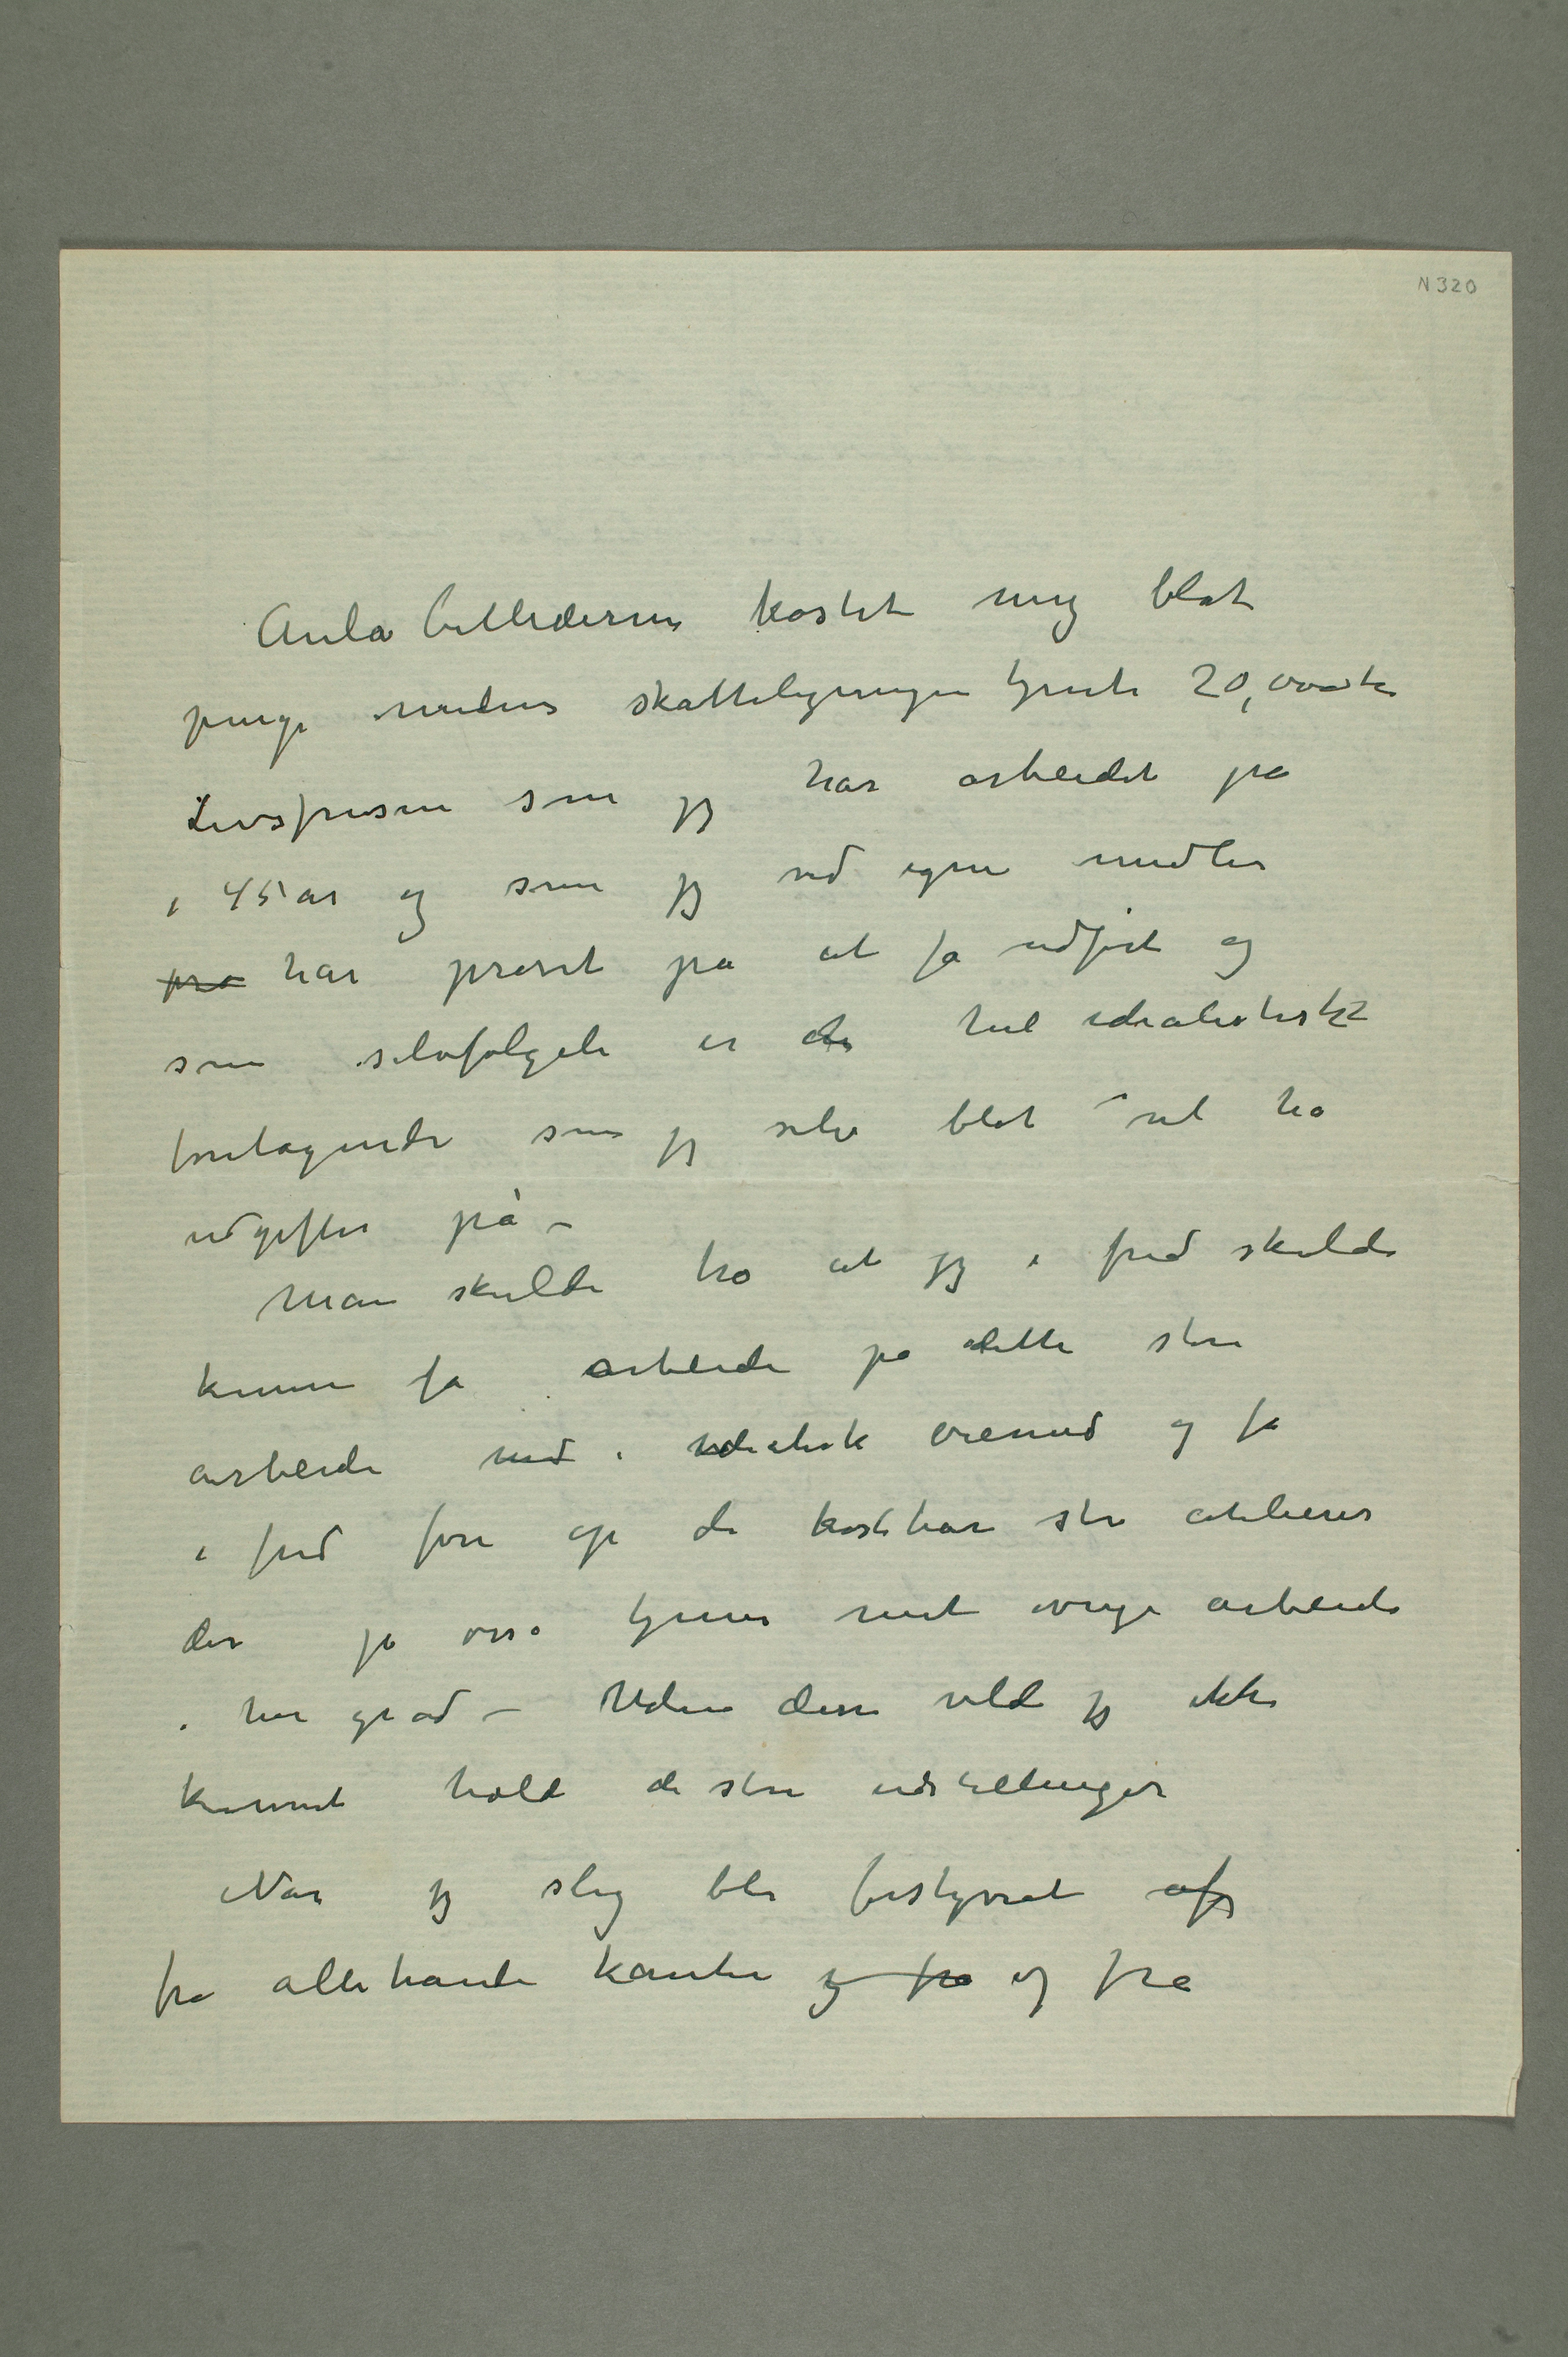 N 320
Aulabillederne kostet mig blot
penge medens skatteligningen tjente 20,000 kr
Livsfrisen som jeg har arbeidet på
i 45 år og som jeg ved egne midler
prø har prøvet på at få udført og
som selvfølgeli er et helt idealistisk
foretagende som jeg selv blot vil ha
udgifter på –
Man skulde tro at jeg i fred skulde
kunne få arbeide på dette store
arbeide med i idealistisk øiemed og få
i fred føre op de kostbare store atelierer
der jo også tjener mit øvrige arbeide
i høi grad – Uden disse vilde jeg ikke
kunnet holde de store udstillinger
Når jeg slig blir forstyrret af
fra allehånde kanter og fra og fra